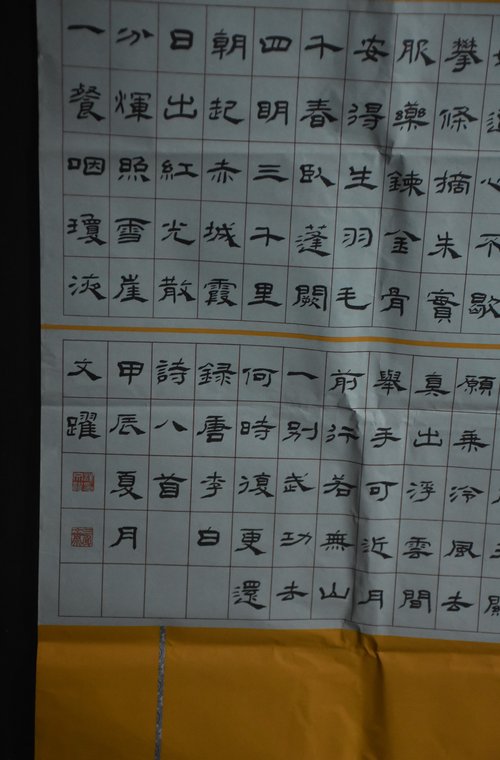 心不歇
攀條摘朱實
服藥鍊金骨
安得生羽毛
千春臥蓬闕
四明三千里
朝起赤城霞
日出紅光散
分煇照雪崖
一餐咽瓊液
願乘泠風去
直出浮雲間
舉手可近月
前行若無山
一別武功去
何時復更還
錄唐李白
詩八首
甲辰夏月
文躍